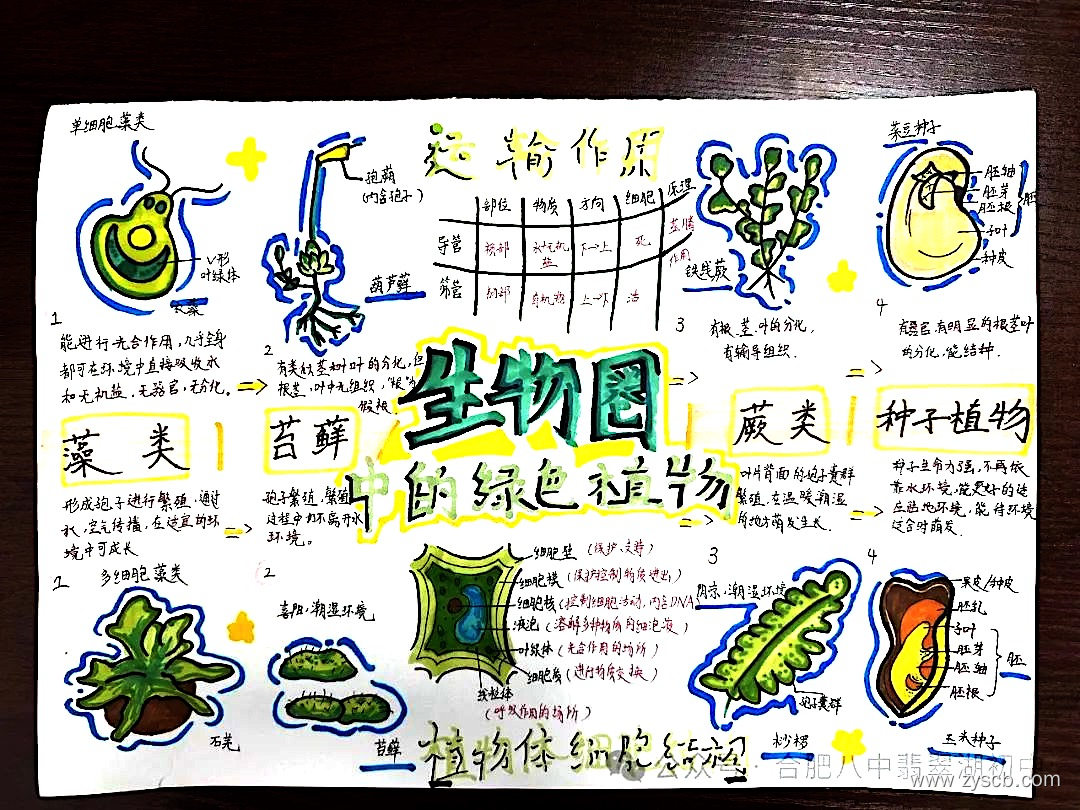 单细胞藻类
孢蒴
(内含孢子)
V形
叶绿体
衣藻
葫芦藓
运输作用
部位 物质 方向 细胞 原理
导管 水+无机盐 下→上 死 蒸腾作用
筛管 有机物 上→下 活
铁线蕨
菜豆种子
胚轴
胚芽
胚根
胚
子叶
种皮
1
能进行光合作用,几乎全身
都可在环境中直接吸收水
和无机盐,无器官,无分化。
2
有类似茎和叶的分化,但
根茎,叶中无组织,“根”为
假根
3
有根茎叶的分化,
有输导组织.
4
有器官,有明显的根茎叶
的分化,能结种.
生物圈
中的绿色植物
藻类
苔藓
蕨类
种子植物
形成孢子进行繁殖,通过
水,空气传播,在适宜的环
境中可成长
孢子繁殖,繁殖
过程中都不离开水
环境。
叶片背面的孢子囊群
繁殖,在温暖潮湿
的地方萌发生长.
种子生命力强,不再依
靠水环境,能更好的适
应陆地环境,能待环境
适合时萌发.
1
多细胞藻类
石莼
2
喜阴,潮湿环境
苔藓
细胞壁(保护、支持)
细胞膜(保护控制物质进出)
细胞核(控制细胞活动,内含DNA)
液泡(溶解多种物质内细胞液)
叶绿体(光合作用的场所)
细胞质(进行物质交换)
线粒体
(呼吸作用的场所)
植物体细胞结构
3
阴凉,潮湿环境
孢子囊群
桫椤
4
果皮/种皮
胚乳
子叶
胚芽
胚轴
胚根
胚
玉米种子
公众号·合肥八中翡翠湖初中
www.zyscb.com